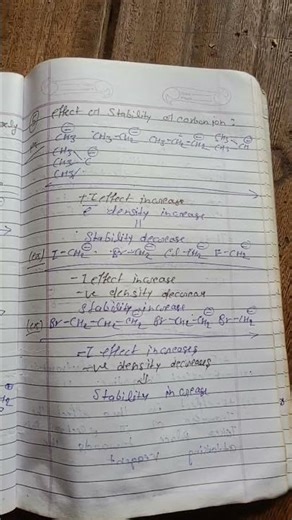 effect on Stability of carbanion :
CH3 CH3-CH2 CH3-CH2-CH2 CH3-CH
CH3
CH3-C
CH3
+I effect increase
e⊖ density increase
||
Stability decrease
(ex) I-CH2 Br-CH2 Cl-CH2 F-CH2
-I effect increase
-ve density decrease
Stability increase
(ex) Br-CH2-CH2-CH2 Br-CH2-CH2 Br-CH2
-I effect increases
-ve density decreases
Stability increase